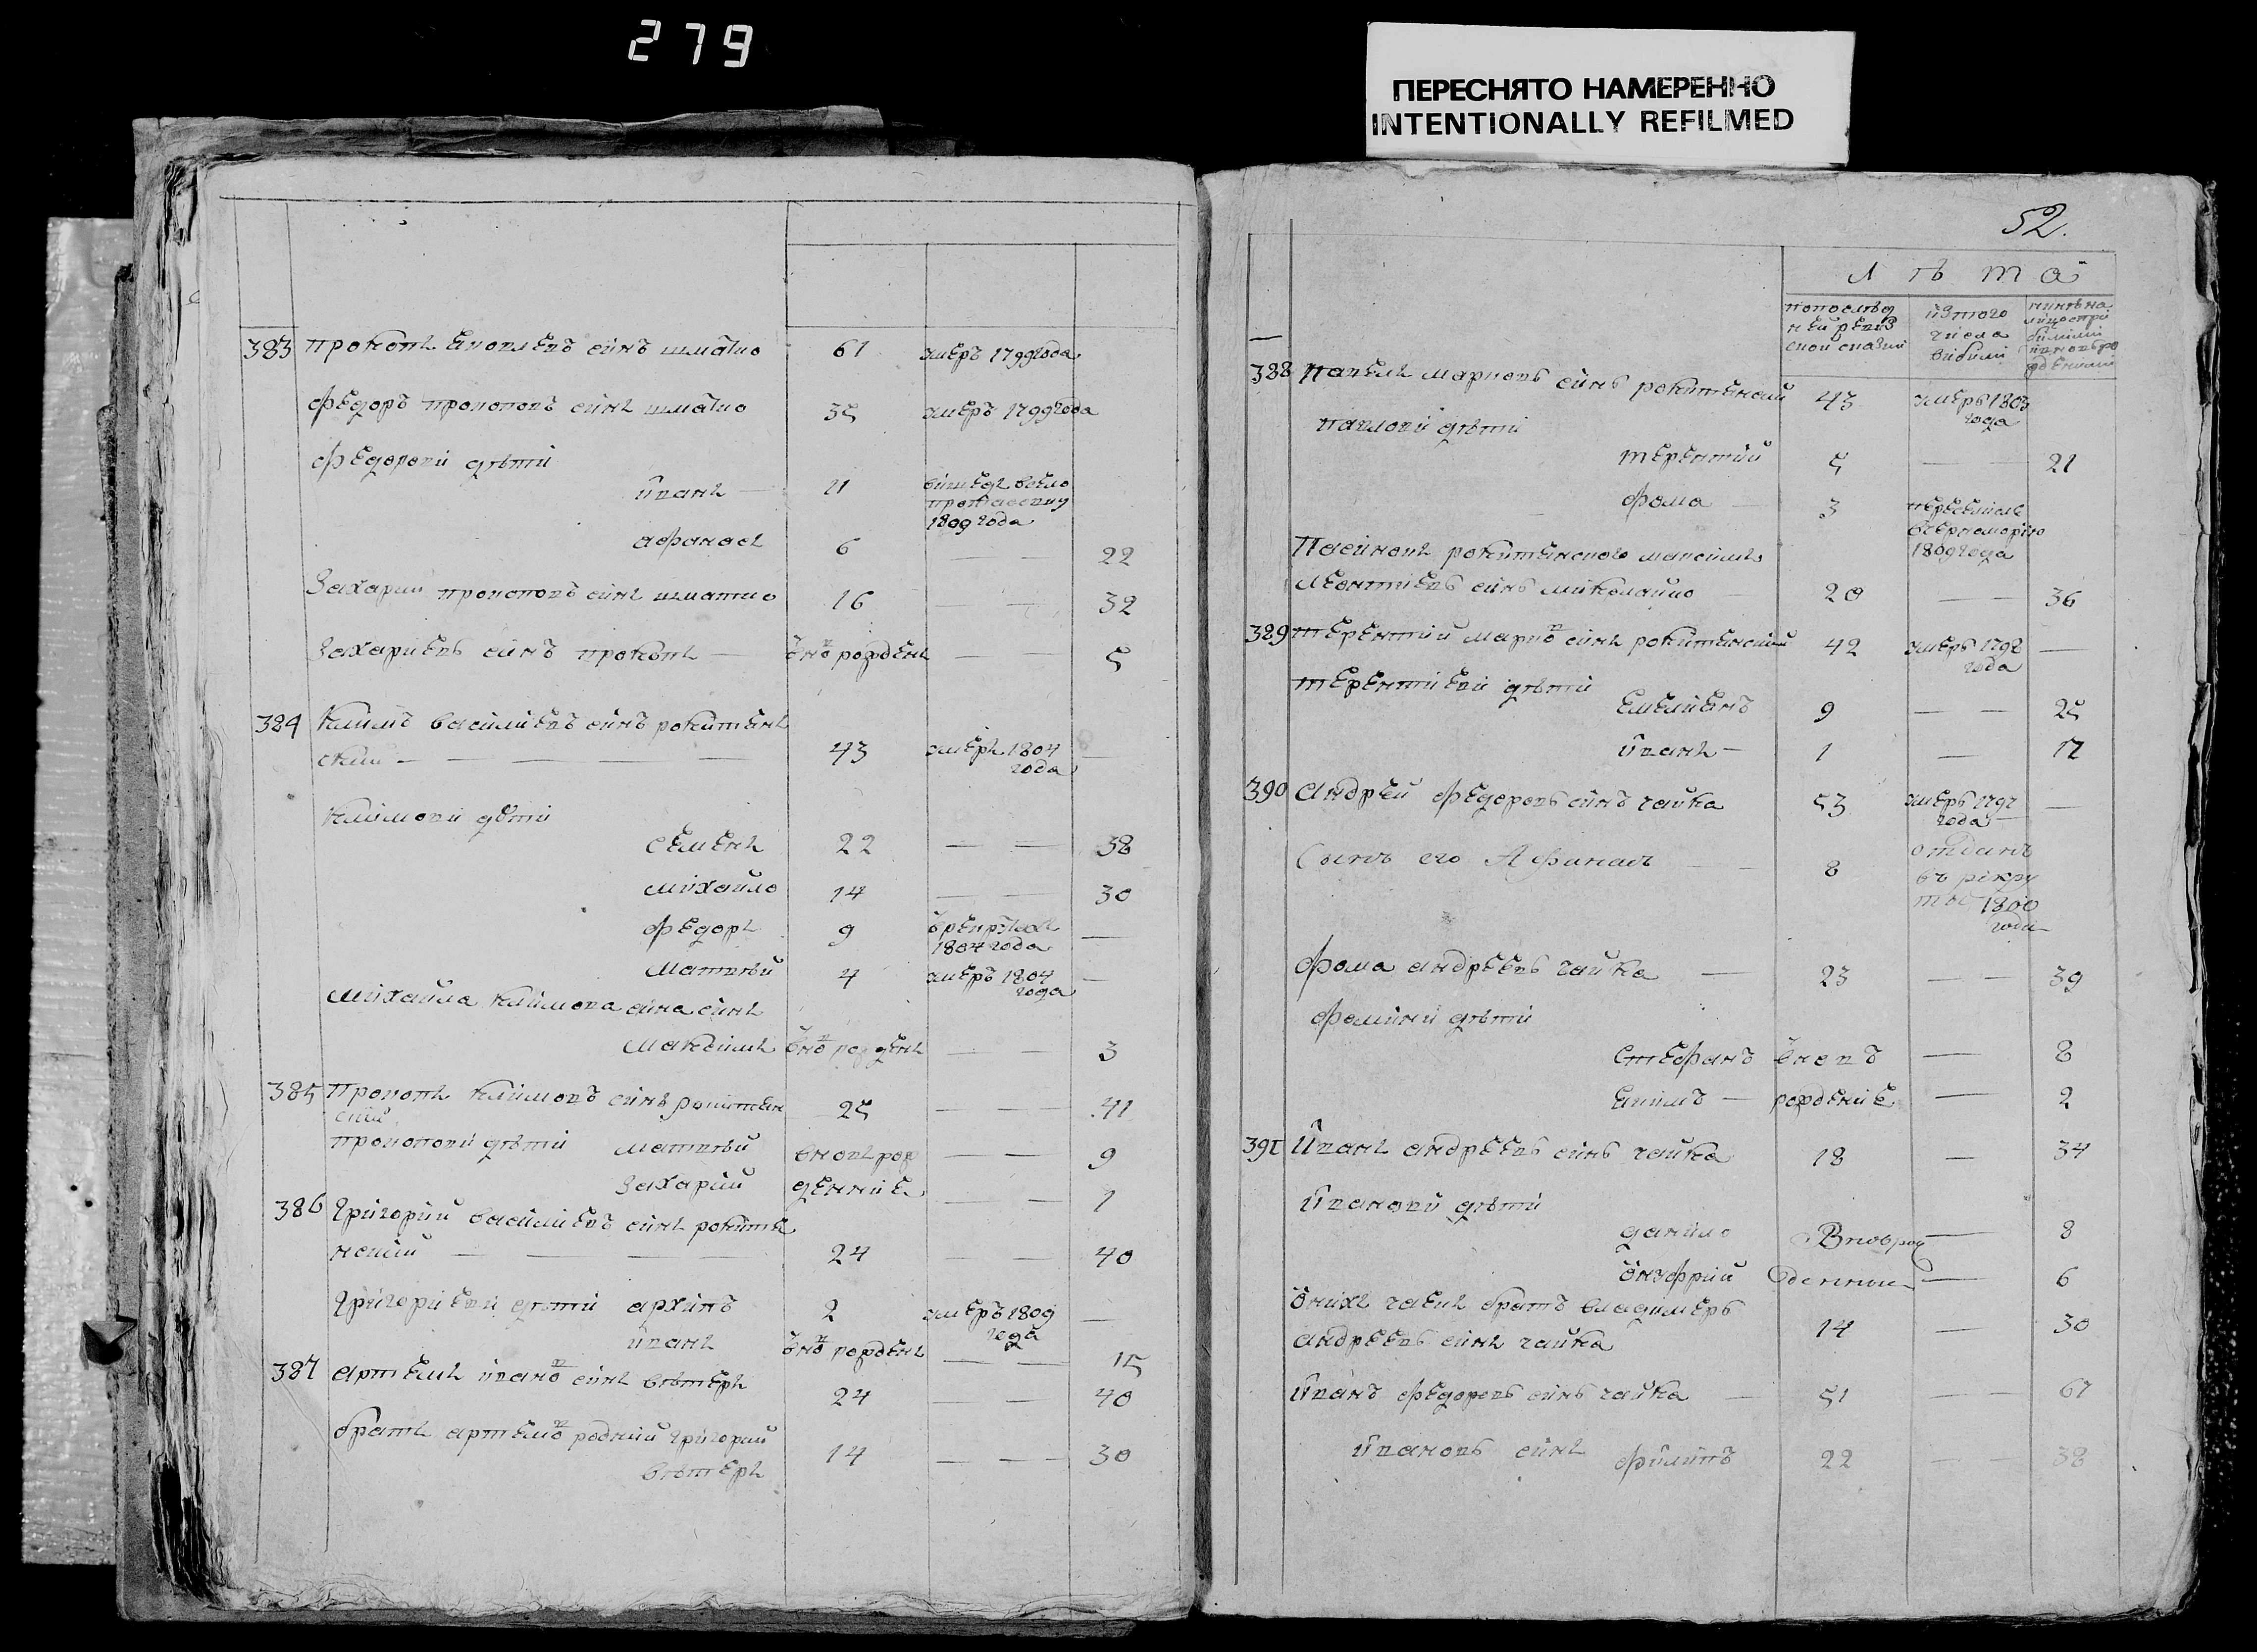 279
ПЕРЕСНЯТО НАМЕРЕННО
INTENTIONALLY REFILMED
383 прокопъ сынъ шматко 61 умеръ 1799года
федоръ прокоповъ сынъ шматко 35 умеръ 1799года
федорови дѣти
иванъ — 11
1809 года
афанасъ 6 — — 22
Захарий прокоповъ сынъ шматко 16 — 32
Захариевъ сынъ прокопъ — вновъ рожденъ — — 5
384 климъ василиевъ сынъ рокитян
ский — — — — — 43 умеръ 1804 —
года
климови дѣти
семенъ 22 — — 38
михайло 14 — — 30
федоръ 9 —
1807 года
матвѣй 4 умеръ 1804 —
года
михайла климова сина синъ
максимъ вновъ рожденъ — — 3
385 Прокопъ климовъ синъ рокитян 25 — — 41
ский
прокопови дѣти матвѣй вновъ рож — — 9
захарий денние — — 1
386 григорий василиевъ синъ рокитя
нский — — — 24 — — 40
григориеви дѣти архипъ 2 умеръ 1809 —
года
иванъ вновъ рожденъ — — 15
387 артемъ ивановъ синъ вѣтеръ 24 — — 40
братъ артемовъ родний григорий 14 — — 30
вѣтеръ
52.
Л ѣ т а
попослѣд изтого нинѣ на
ней ревиз числа лицо
ской сказки вибили
388 павелъ марковъ синъ рокитянский 43 умеръ 1803
года
павлови дѣти
терентий 5 — — 21
фома — 3
вчерноморию
1809 года
Пасинокъ рокитянского максимъ
леонтиевъ синъ миколайко 20 — — 36
389 терентий марковъ синъ рокитянский 42 умеръ 1798 —
года
терентиеви дѣти
емелиянъ 9 — — 25
иванъ — 1 — 17
390 андрей федоровъ синъ чайка 53 умеръ 1797 —
года —
Сынъ его Афанасъ — 8 отданъ
въ рекру
ты 1800
года
фома андреевъ чайка — 23 — — 39
фомини дѣти
стефанъ вновъ — 8
екимъ — рожденние — 2
391 иванъ андреевъ синъ чайка 18 — 34
иванови дѣти
данило Вновърож — 8
онуфрий денные — 6
онихъ братъ владимеръ
андреевъ синъ чайка 14 — 30
иванъ федоровъ синъ чайка — 51 — — 67
ивановъ синъ филипъ 22 — — 38